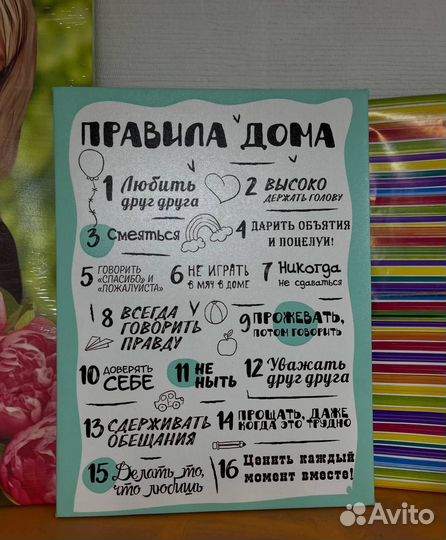 ПРАВИЛА ДОМА
1 Любить
друг друга
2 ВЫСОКО
ДЕРЖАТЬ ГОЛОВУ
3 Смеяться
4 ДАРИТЬ ОБЪЯТИЯ
И ПОЦЕЛУИ!
5 ГОВОРИТЬ
«СПАСИБО» И
«ПОЖАЛУЙСТА»
6 НЕ ИГРАТЬ
В МЯЧ В ДОМЕ
7 Никогда
не сдаваться
8 ВСЕГДА
ГОВОРИТЬ
ПРАВДУ
9 ПРОЖЕВАТЬ,
ПОТОМ ГОВОРИТЬ
10 ДОВЕРЯТЬ
СЕБЕ
11 НЕ
НЫТЬ
12 Уважать
друг друга
13 СДЕРЖИВАТЬ
ОБЕЩАНИЯ
14 ПРОЩАТЬ, ДАЖЕ
КОГДА ЭТО ТРУДНО
15 Делать то,
что любишь
16 Ценить каждый
момент вместе!
Avito